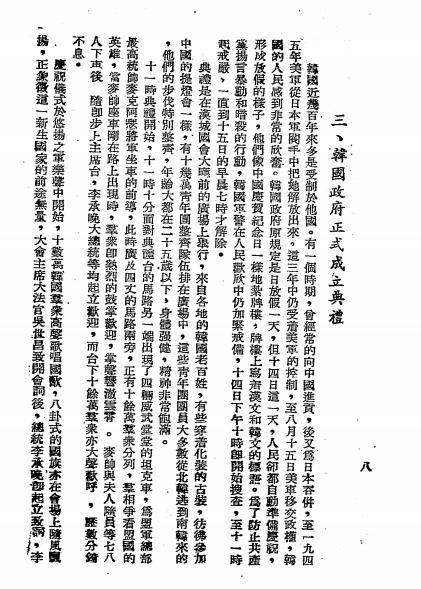 三、韓國政府正式成立典禮
八
韓國近幾百年來多是受制於他國。有一個時期，曾經常的向中國進貢，後又爲日本吞併，至一九四
五年美軍從日本軍閥手中把地解放出來，這三年中仍受着美軍的控制，至八月十五日美軍移交政權，韓
國的人民感到非常的欣奮。韓國政府原規定是日放假一天，但十四日這一天，人民卻都自動準備慶祝，
形成放假的樣子，他們像中國慶賀紀念日一樣地紮牌樓，牌樓上寫着漢文和韓文的標語。爲了防止共產
黨揚言暴動和暗殺的行動，韓國軍警在人民歡欣中仍加緊戒備，十四日下午十時卽開始搜查，至十一時
起戒嚴，一直到十五日的早晨七時才解除。
典禮是在漢城國會大廳前的廣場上舉行，來自各地的韓國老百姓，有些穿着化裝的古裝，彷彿參加
中國的提燈會一樣，有十幾萬青年團整齊隊伍排在廣場中，這些靑年團團員大多數從北韓逃到南韓來的
，他們的步伐特別整齊，年齡大都在二十五歲以下，身體强健，精神非常飽滿。
十一時典禮開始，十一時十分面對典禮台的馬路另一端出現了四輛威武堂堂的坦克車，爲盟軍總部
最高統帥麥克阿瑟將軍坐車的前導，此時廣及四丈的馬路兩旁，正有十餘萬羣衆分列，羣相爭看盟國的
英雄，當麥帥座車剛在路上出現時，羣衆卽熱烈的鼓掌歡迎，掌聲響澈雲霄。麥帥與夫人隨員等七八
人下車後　隨卽步上主席台，李承晚大總統等均起立歡迎，而台下十餘萬羣衆亦大聲歡呼，歷數分鐘
不息。
慶祝儀式於悠揚之軍樂聲中開始，十數萬韓國羣衆高聲歌唱國歌，八卦式的國旗亦在會場上隨風飄
揚，正象徵這一新生國家的前途無量，大會主席大法官吳世昌致開會詞後，總統李承晚卽起立致詞，李